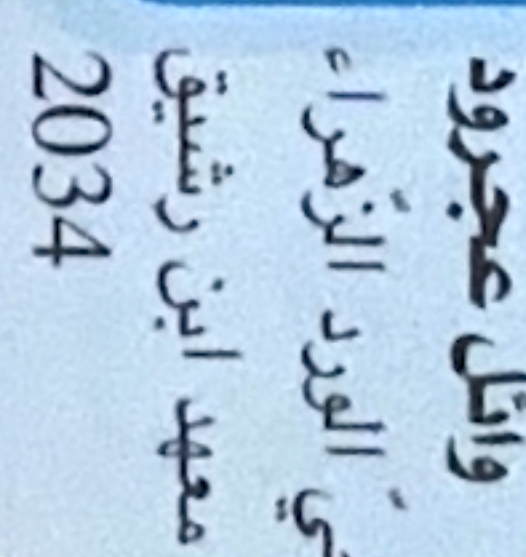 وائل عجرود
حيّ الورد الزّهراء
معهد ابن رشيق
2034